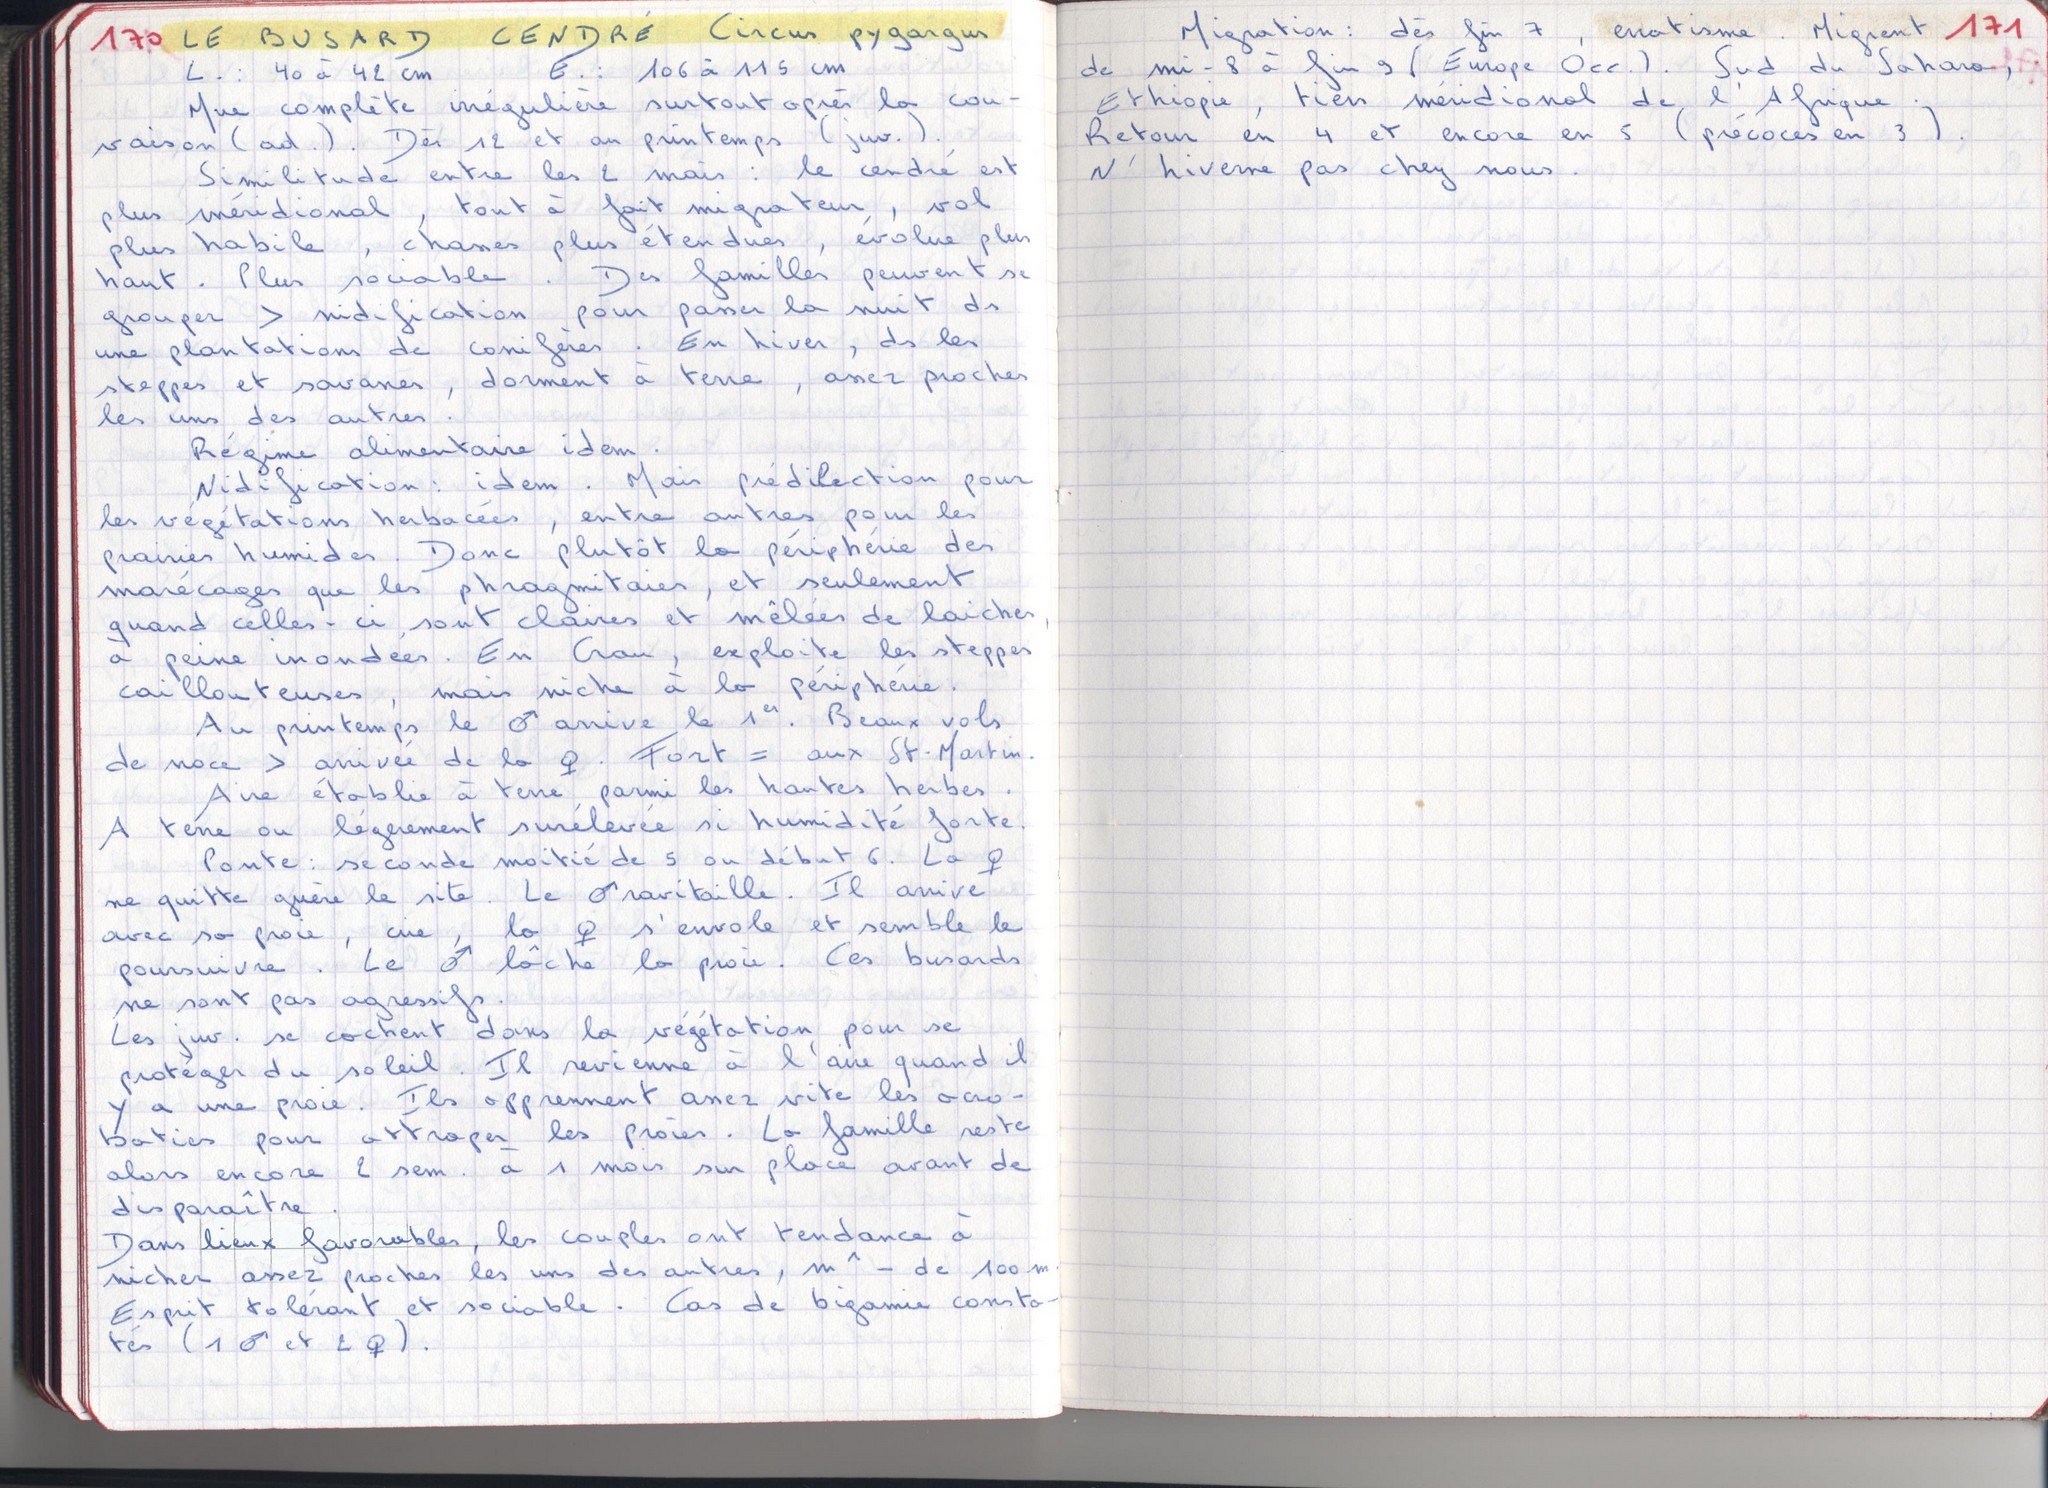 170 LE BUSARD CENDRÉ Circus pygargus
L. : 40 à 42 cm E. : 106 à 115 cm
Mue complète irrégulière surtout après la cou-
vaison (ad.). Dès 12 et au printemps (juv.).
Similitude entre les 2 mais : le cendré est
plus méridional, tout à fait migrateur, vol
plus habile, chasses plus étendues, évolue plus
haut. Plus sociable. Des familles peuvent se
grouper > nidification pour passer la nuit ds
une plantations de conifères. En hiver, ds les
steppes et savanes, dorment à terre, assez proches
les uns des autres.
Régime alimentaire idem.
Nidification : idem. Mais prédilection pour
les végétations herbacées, entre autres pour les
prairies humides. Donc plutôt la périphérie des
marécages que les phragmitaies, et seulement
quand celles-ci sont claires et mêlées de laiches,
à peine inondées. En Crau, exploite les steppes
caillouteuses, mais niche à la périphérie.
Au printemps le ♂ arrive le 1er. Beaux vols
de noce > arrivée de la ♀. Fort = aux St-Martin.
Aire établie à terre parmi les hautes herbes.
A terre ou légèrement surélevée si humidité forte.
Ponte : seconde moitié de 5 ou début 6. La ♀
ne quitte guère le site. Le ♂ ravitaille. Il arrive
avec sa proie, crie, la ♀ s'envole et semble le
poursuivre. Le ♂ lâche la proie. Ces busards
ne sont pas agressifs.
Les juv. se cachent dans la végétation pour se
protéger du soleil. Il revienne à l'aire quand il
y a une proie. Ils apprennent assez vite les acro-
baties pour attraper les proies. La famille reste
alors encore 2 sem. à 1 mois sur place avant de
disparaître.
Dans lieux favorables, les couples ont tendance à
nicher assez proches les uns des autres, m^ - de 100 m.
Esprit tolérant et sociable. Cas de bigamie consta-
tés (1 ♂ et 2 ♀).
Migration : dès fin 7, erratisme. Migrent 171
de mi-8 à fin 9 (Europe Occ.). Sud du Sahara,
Ethiopie, tiers méridional de l'Afrique.
Retour en 4 et encore en 5 (précoces en 3).
N'hiverne pas chez nous.